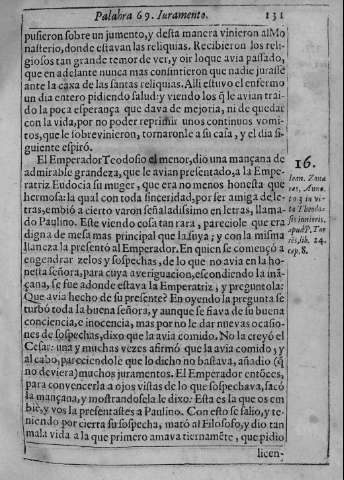 Palabra 69. Iuramento.
131
pusieron sobre un jumento, y desta manera vinieron al Mo
nasterio, donde estavan las reliquias. Recibieron los reli-
giosos tan grande temor de ver, y oir loque avia passado,
que en adelante nunca mas consintieron que nadie jurasse
ante la caxa de las santas reliquias. Alli estuvo el enfermo
un dia entero pidiendo salud: y viendo los q̃ le avian trai-
do la poca esperança que dava de mejoria, ni de quedar
con la vida, por no poder reprimir unos continuos vomi-
tos, que le sobrevinieron, tornaronle a su casa, y el dia si-
guiente espiró.
El Emperador Teodosio el menor, dio una mançana de
admirable grandeza, que le avian presentado, a la Empe-
ratriz Eudocia su muger, que era no menos honesta que
hermosa: la qual con toda sinceridad, por ser amiga de le-
tras, embió a cierto varon señaladissimo en letras, llama-
do Paulino. Este viendo cosa tan rara, pareciole que era
digna de mesa mas principal que la suya; y con la misma
llaneza la presentó al Emperador. En quien se començó a
engendrar zelos y sospechas, de lo que no avia en la ho-
nesta señora, para cuya averiguacion, escondiendo la mã-
çana, se fue adonde estava la Emperatriz, y preguntola:
Que avia hecho de su presente? En oyendo la pregunta se
turbó toda la buena señora, y aunque se fiava de su buena
conciencia, e inocencia, mas por no le dar nuevas ocasio-
nes de sospechas, dixo que la avia comido. No la creyó el
Cesar: una y muchas vezes afirmó que la avia comido; y
al cabo, pareciendole que lo dicho no bastava, añadio (q̃
no deviera) muchos juramentos. El Emperador entõces,
para convencerla a ojos vistas de lo que sospechava, sacó
la mançana, y mostrandosela le dixo: Esta es la que os em
bié, y vos la presentastes a Paulino. Con esto se salio, y te-
niendo por cierta su sospecha, mató al Filosofo, y dio tan
mala vida a la que primero amava tiernamẽte, que pidio
licen-
16.
Ioan. Zona
res, Anna.
to. 3 in vi-
ta Theodo-
sii iunioris,
apud P. Tor
res, lib. 24.
cap. 8.